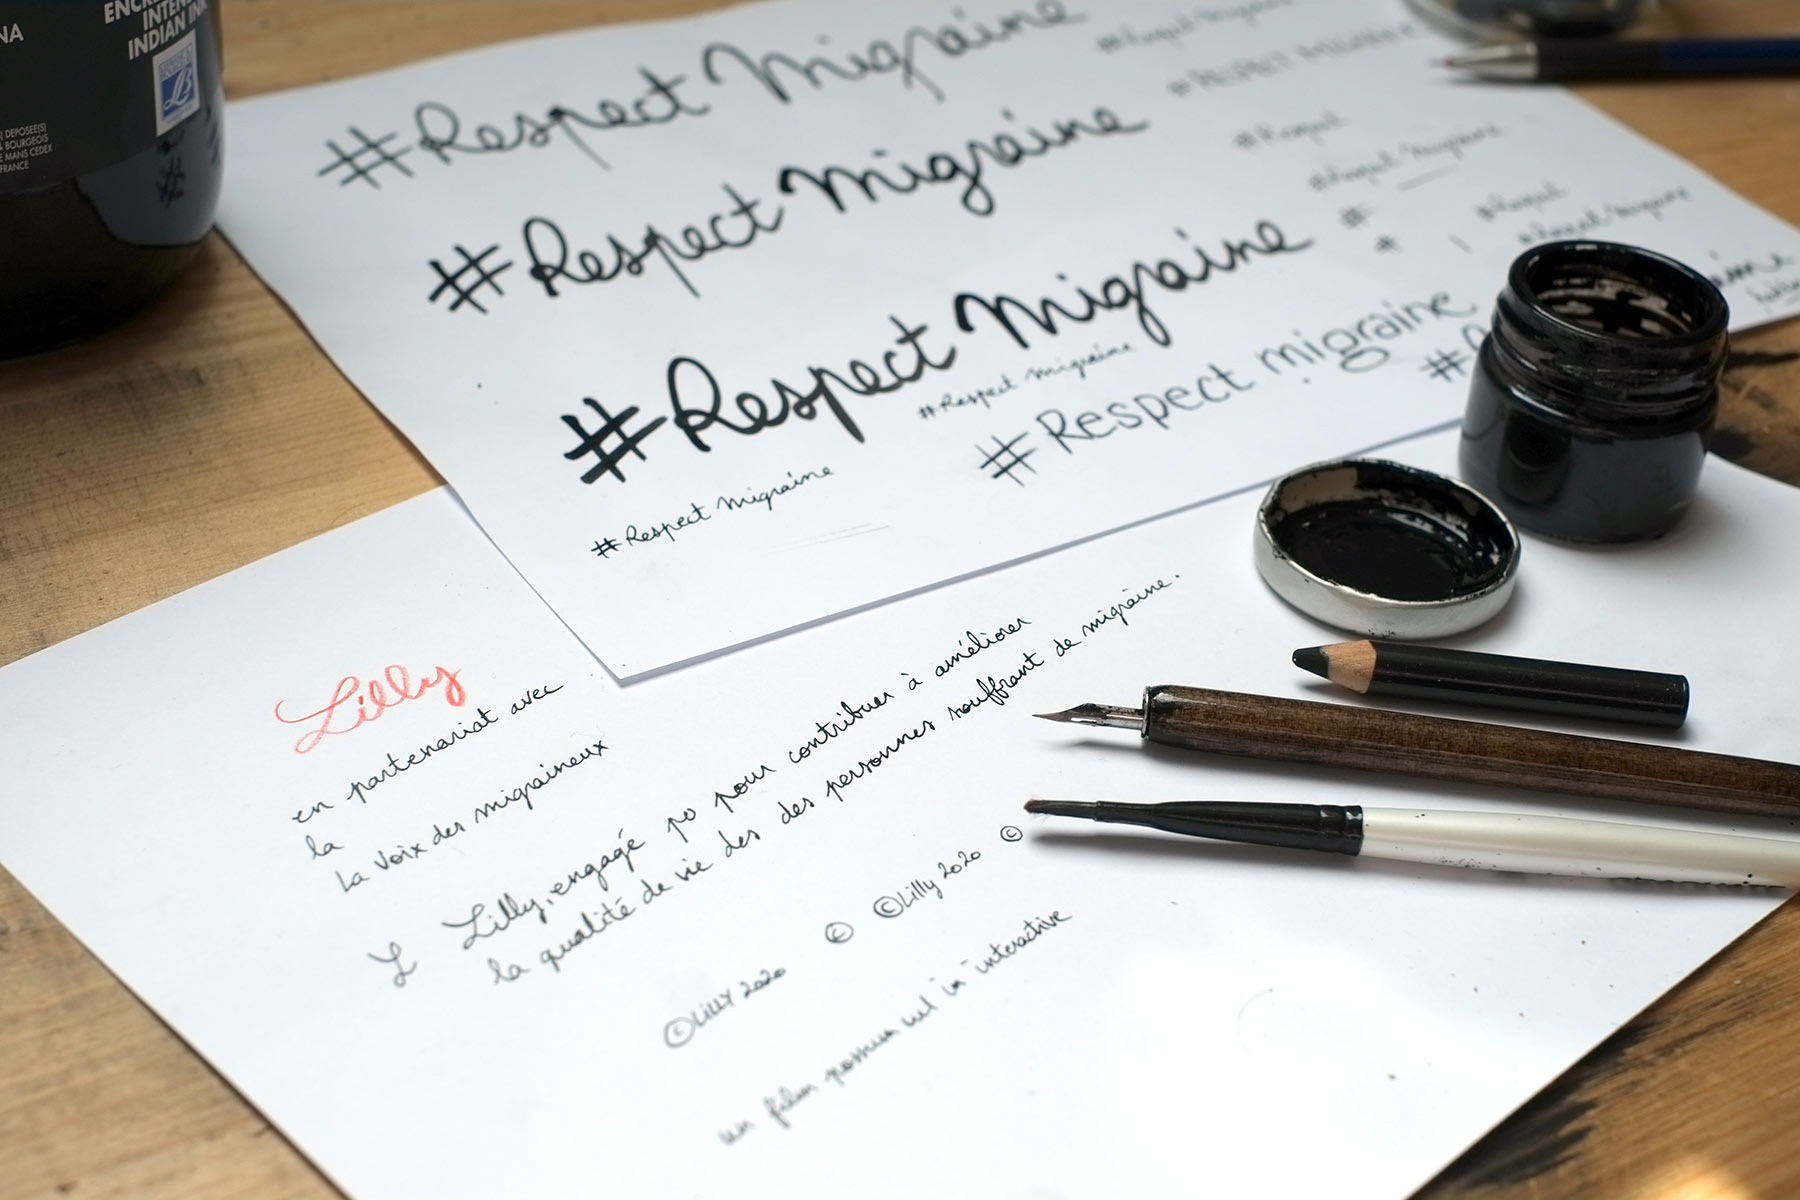 NA
ENCRE
INTENSE
INDIAN INK
LB
DEPOSEE(S)
& BOURGEOIS
LE MANS CEDEX
FRANCE
#Respect Migraine
#Respect Migraine
#Respect Migraine
#Respect Migraine
#Respect migraine
#Respect Migraine
#Respect Migraine
#RESPECT MIGRAINE
#Respect
#Respect Migraine
#
#
#Respect
#Respect Migraine
#
Lilly
en partenariat avec
la
la voix des migraineux
L
Lilly, engagé po pour contribuer à améliorer
la qualité de vie des des personnes souffrant de migraine.
©LILLY 2020
©
©Lilly 2020
©
un film possum interactive